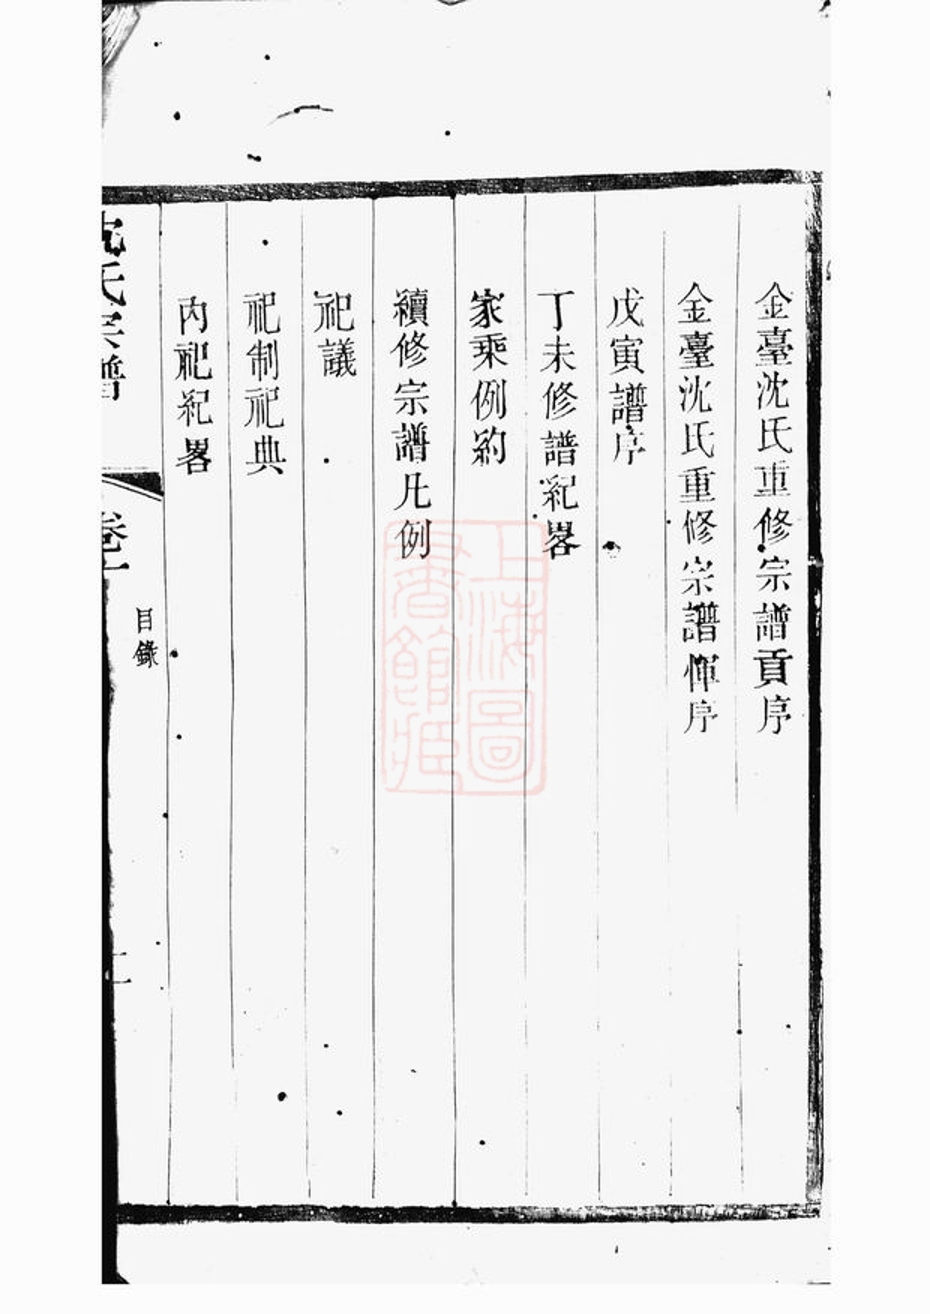 金臺沈氏重修宗譜貢序
金臺沈氏重修宗譜惲序
戊寅譜序
丁未修譜紀畧
家乘例約
續修宗譜凡例
祀議
祀制祀典
內祀紀畧
沈氏宗譜
卷一
目錄
上海圖書館藏